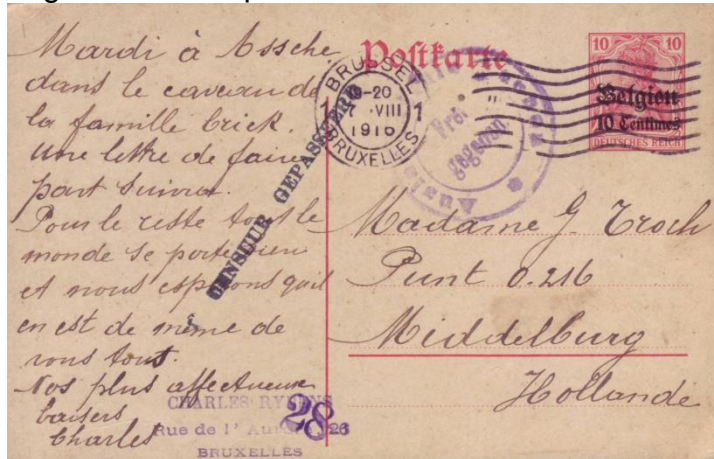 Mardi à Assche
dans le caveau de
la famille Crick.
Une lettre de faire
part suivra.
Pour le reste tout le
monde se porte bien
et nous espérons qu'il
en est de même de
vous tous.
Nos plus affectueux
baisers
Charles
CHARLES
Rue de l'
26
BRUXELLES
28
CENSEUR GEPASSEERD
Postkarte
BRUSSEL
-20
VIII
1916
BRUXELLES
1
1
10 10
Belgien
10 Centimes
DEUTSCHES REICH
Madame G. Troch
Punt O.216
Middelburg
Hollande